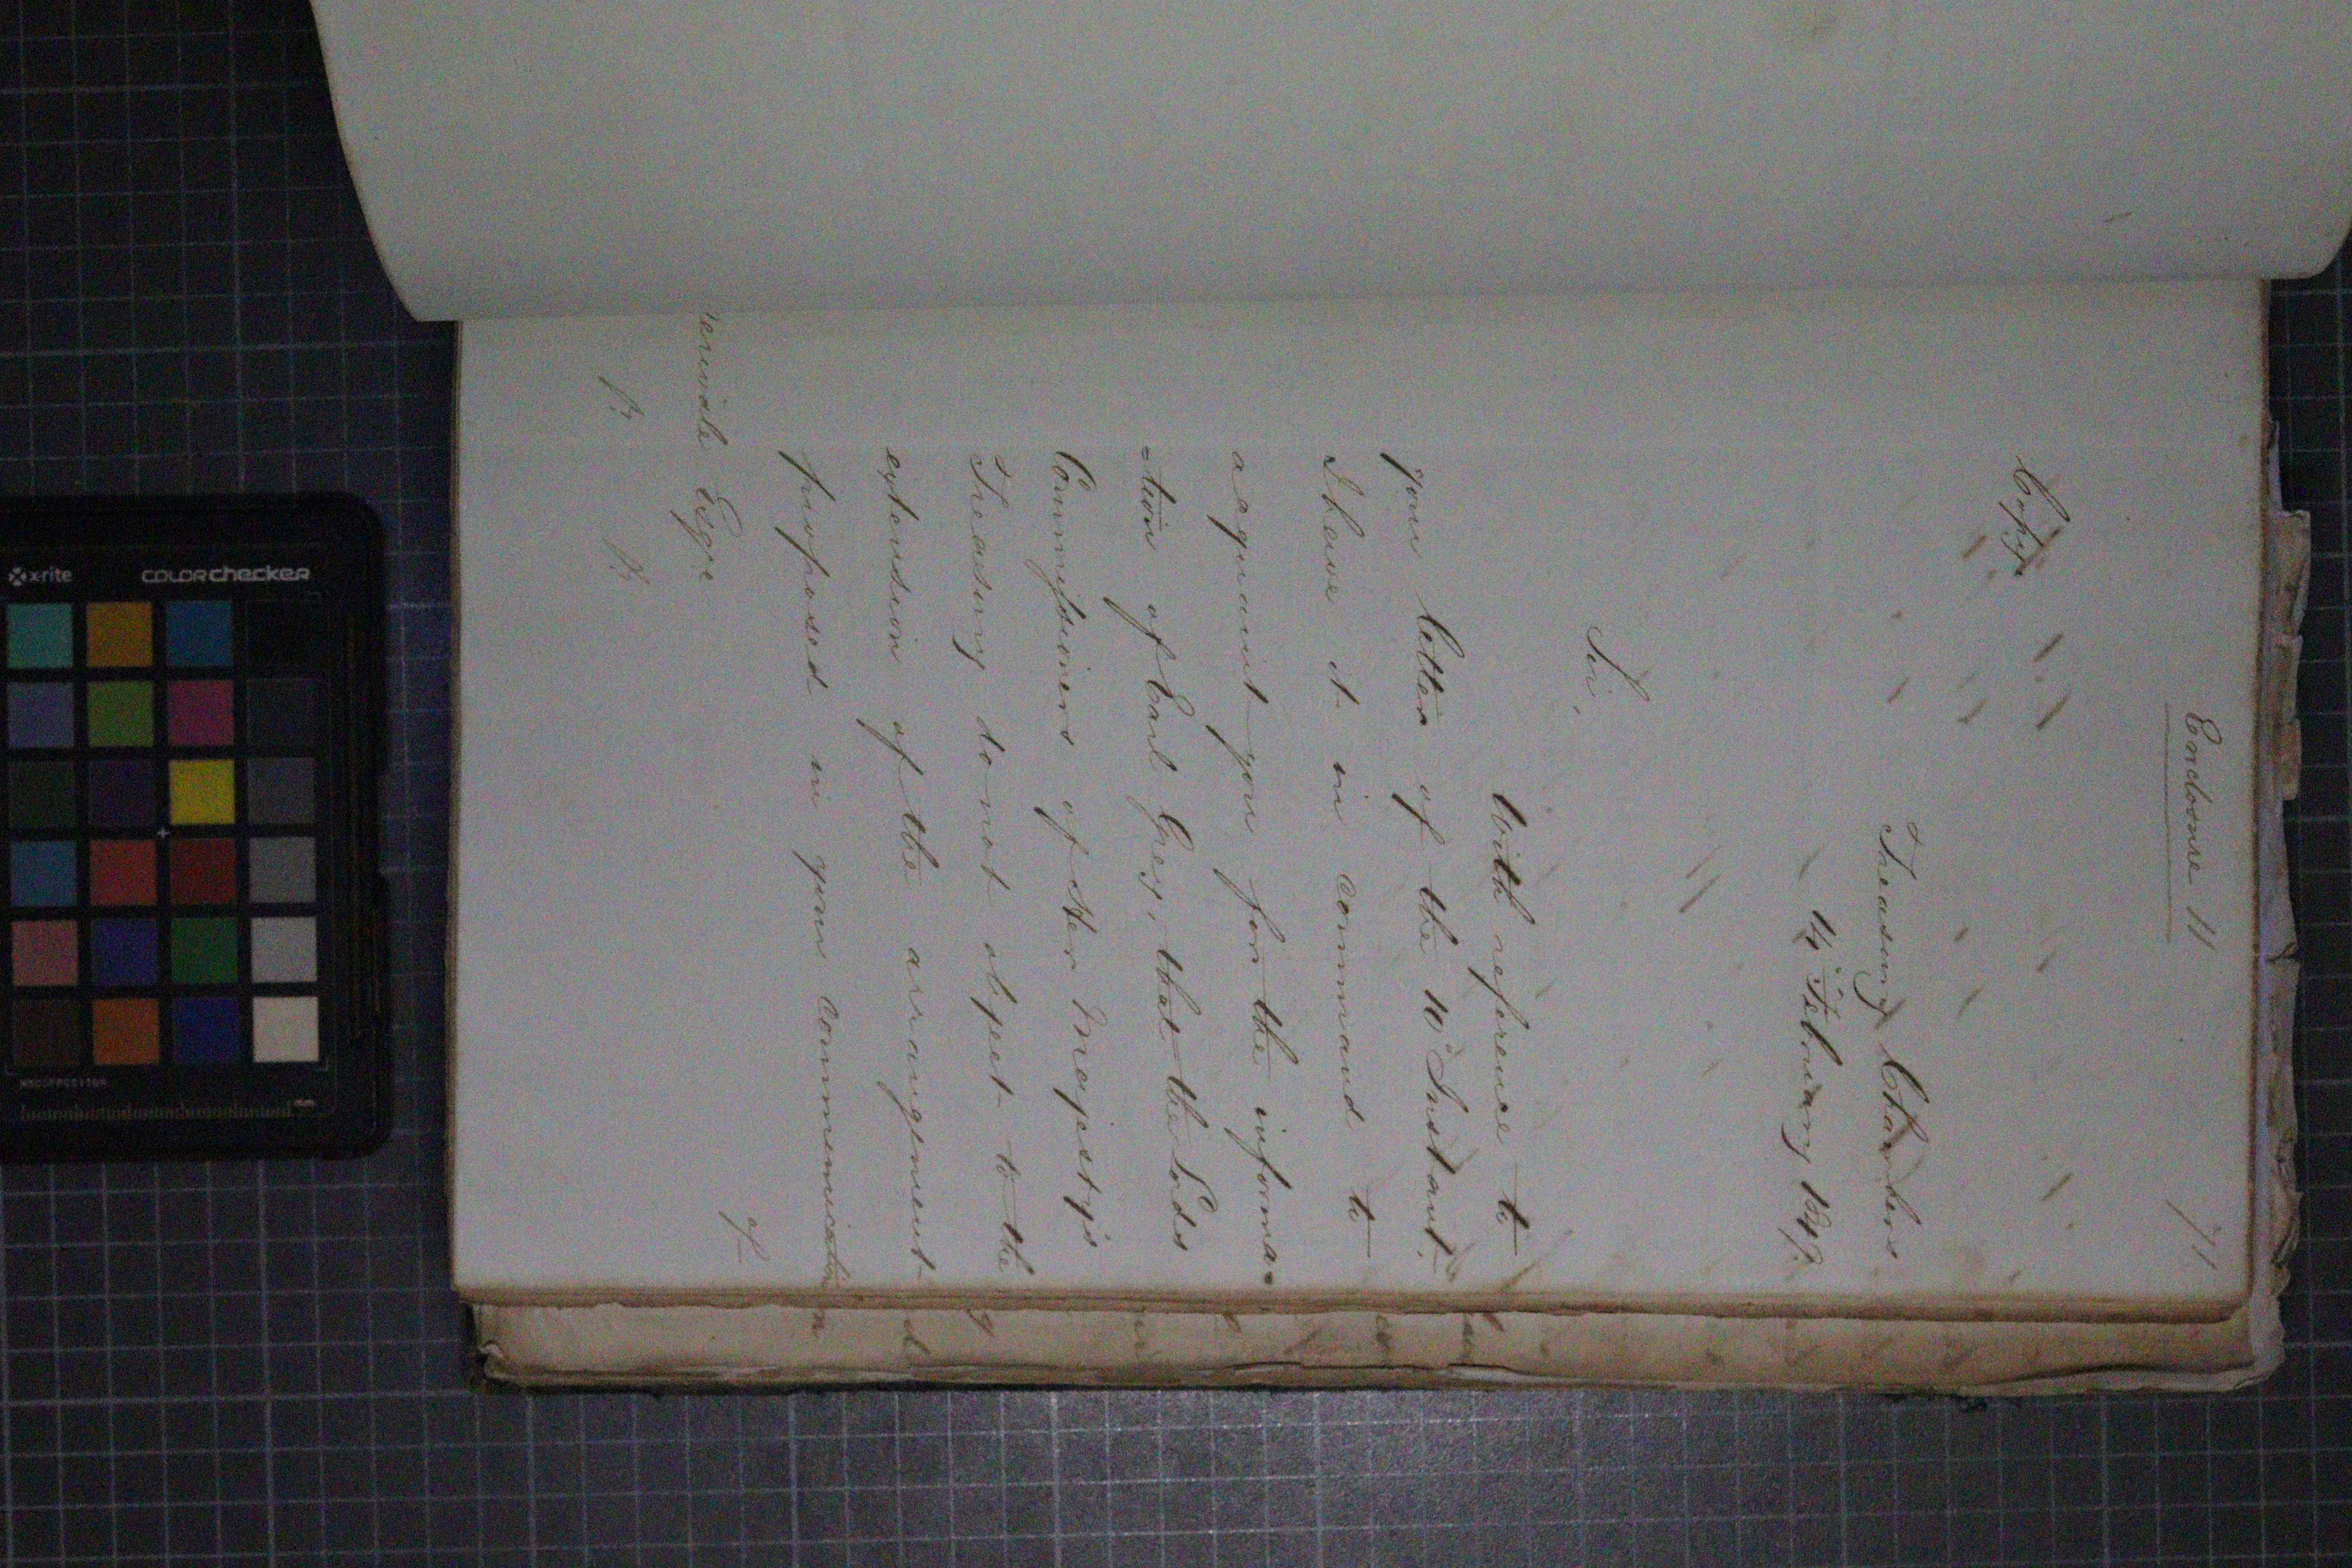 71
Enclosure 11
Copy
Treasury Chambers
14 February 1849.
Sir,
With reference to
your letter of the 10 Instant.
I have it in command to
acquaint you for the informa=
=tion of Earl Grey, that the Lords
Commissioners of Her Majesty's
Treasury do not object to the
extension of the arrangement
proposed in your communication
of
erivale Esqre
x-rite
colorchecker